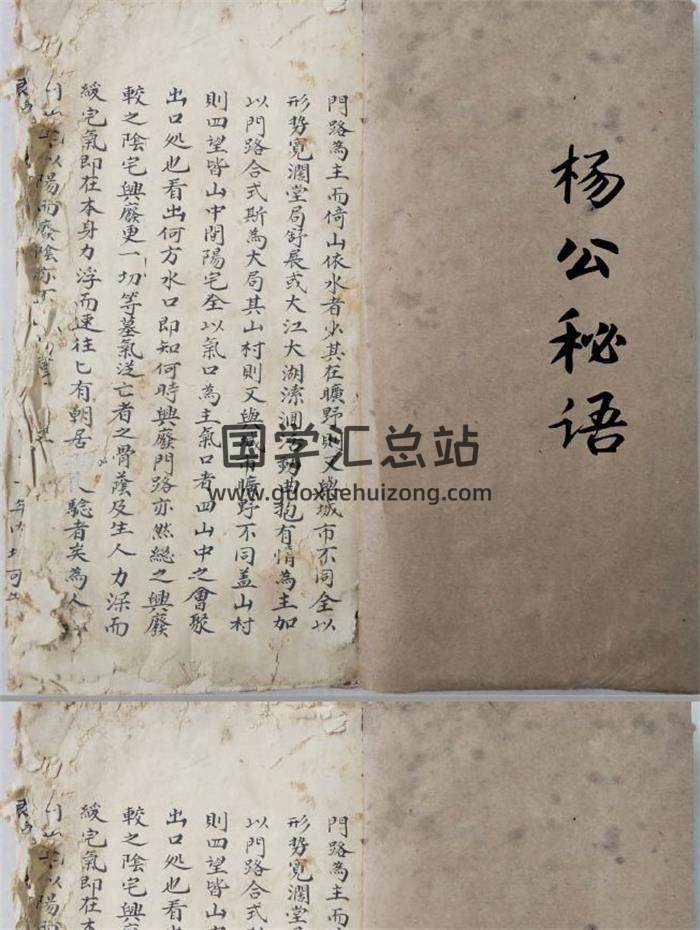 杨公秘语
門路為主而倚山依水者少其在曠野則又與城市不同全以
形勢寬濶堂局舒展或大江大湖潆洄曲抱有情為主加
以門路合式斯為大局其山村則又與城市曠野不同盖山村
則四望皆山中陽宅全以氣口為主氣口者四山中之會聚
出口処也看出何方水口即知何時興廢門路亦然緫之興廢
較之陰宅興廢更一切等墓氣送亡者之骨蔭及生人力深而
緩宅氣即在本身力浮而速往匕有朝居驗者矣為人
以陽而廢陰亦
国学汇总站
www.guoxuehuizong.com
門路為主而
形勢寬濶堂
以門路合式
則四望皆山
出口処也看出
較之陰宅興
緩宅氣即在本